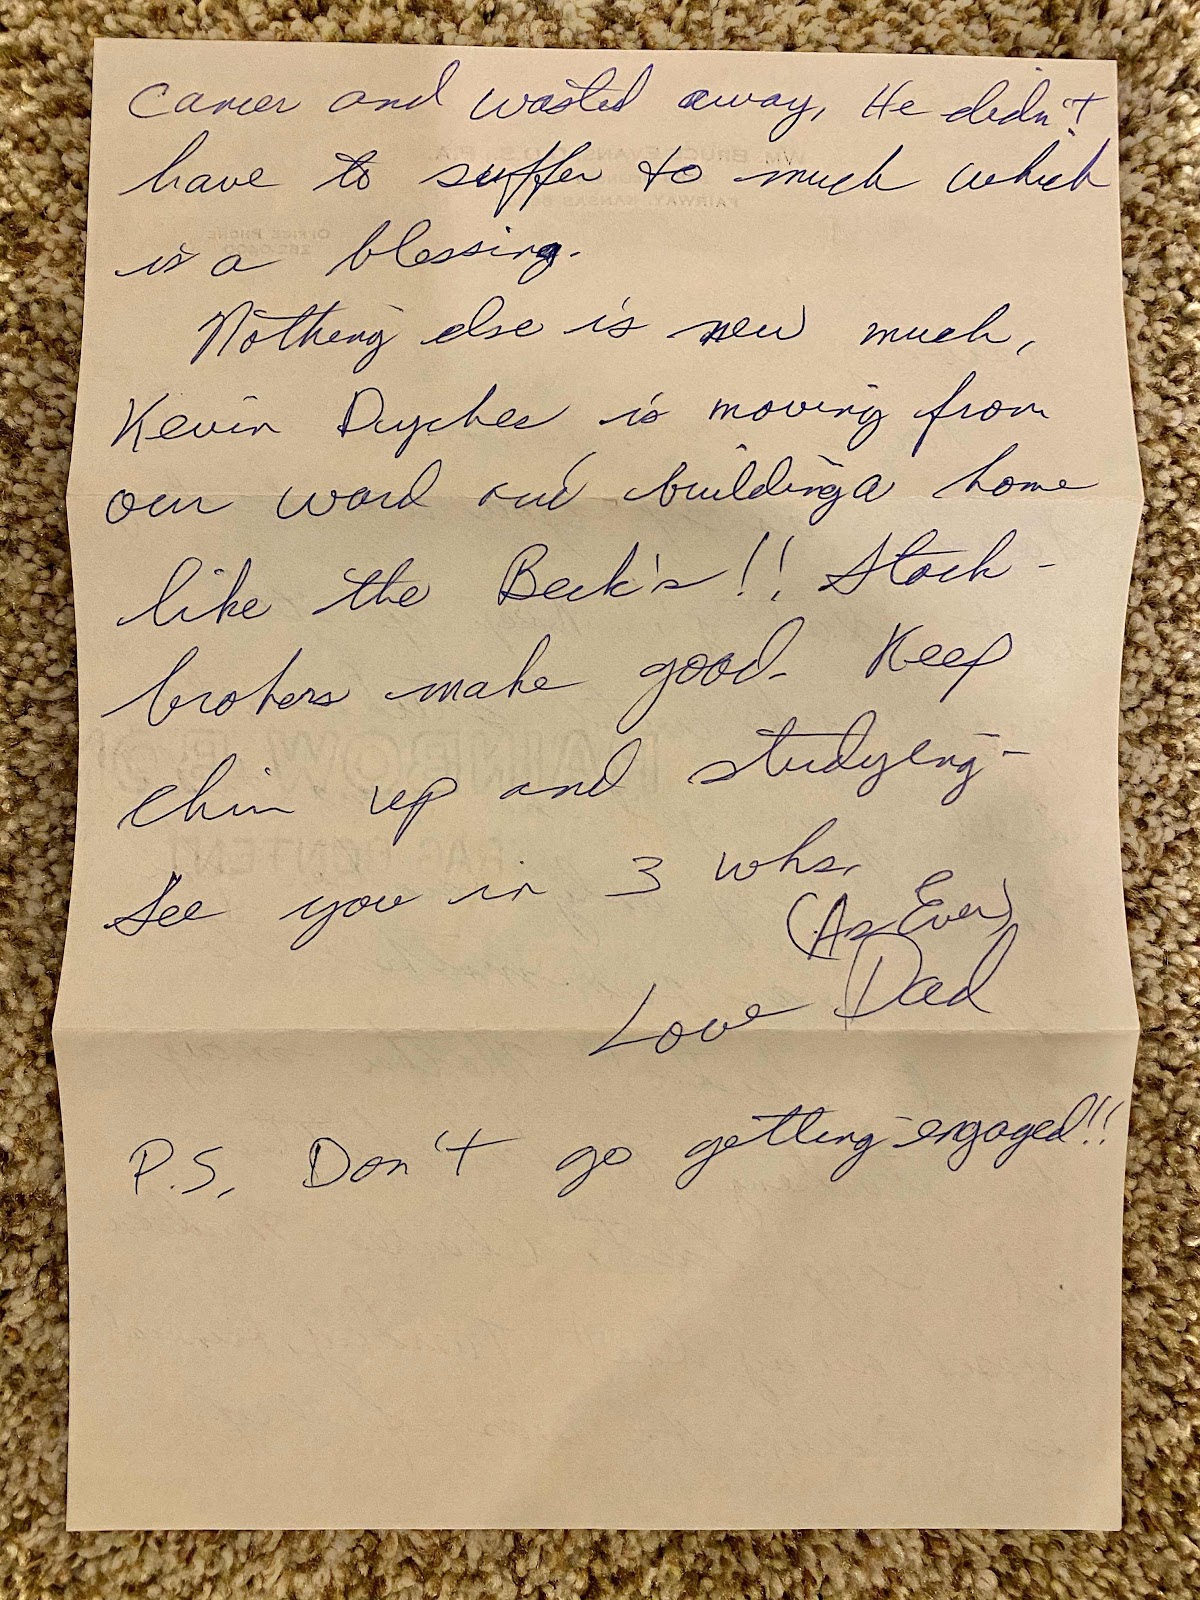 Cancer and wasted away, He didn't
have to suffer to much which
is a blessing.
Nothing else is new much,
Kevin Dyches is moving from
our ward and building a home
like the Beck's!! Stock-
brokers make good. Keep
chin up and studying-
See you in 3 wks.
(As Ever)
Love Dad
P.S. Don't go getting engaged!!